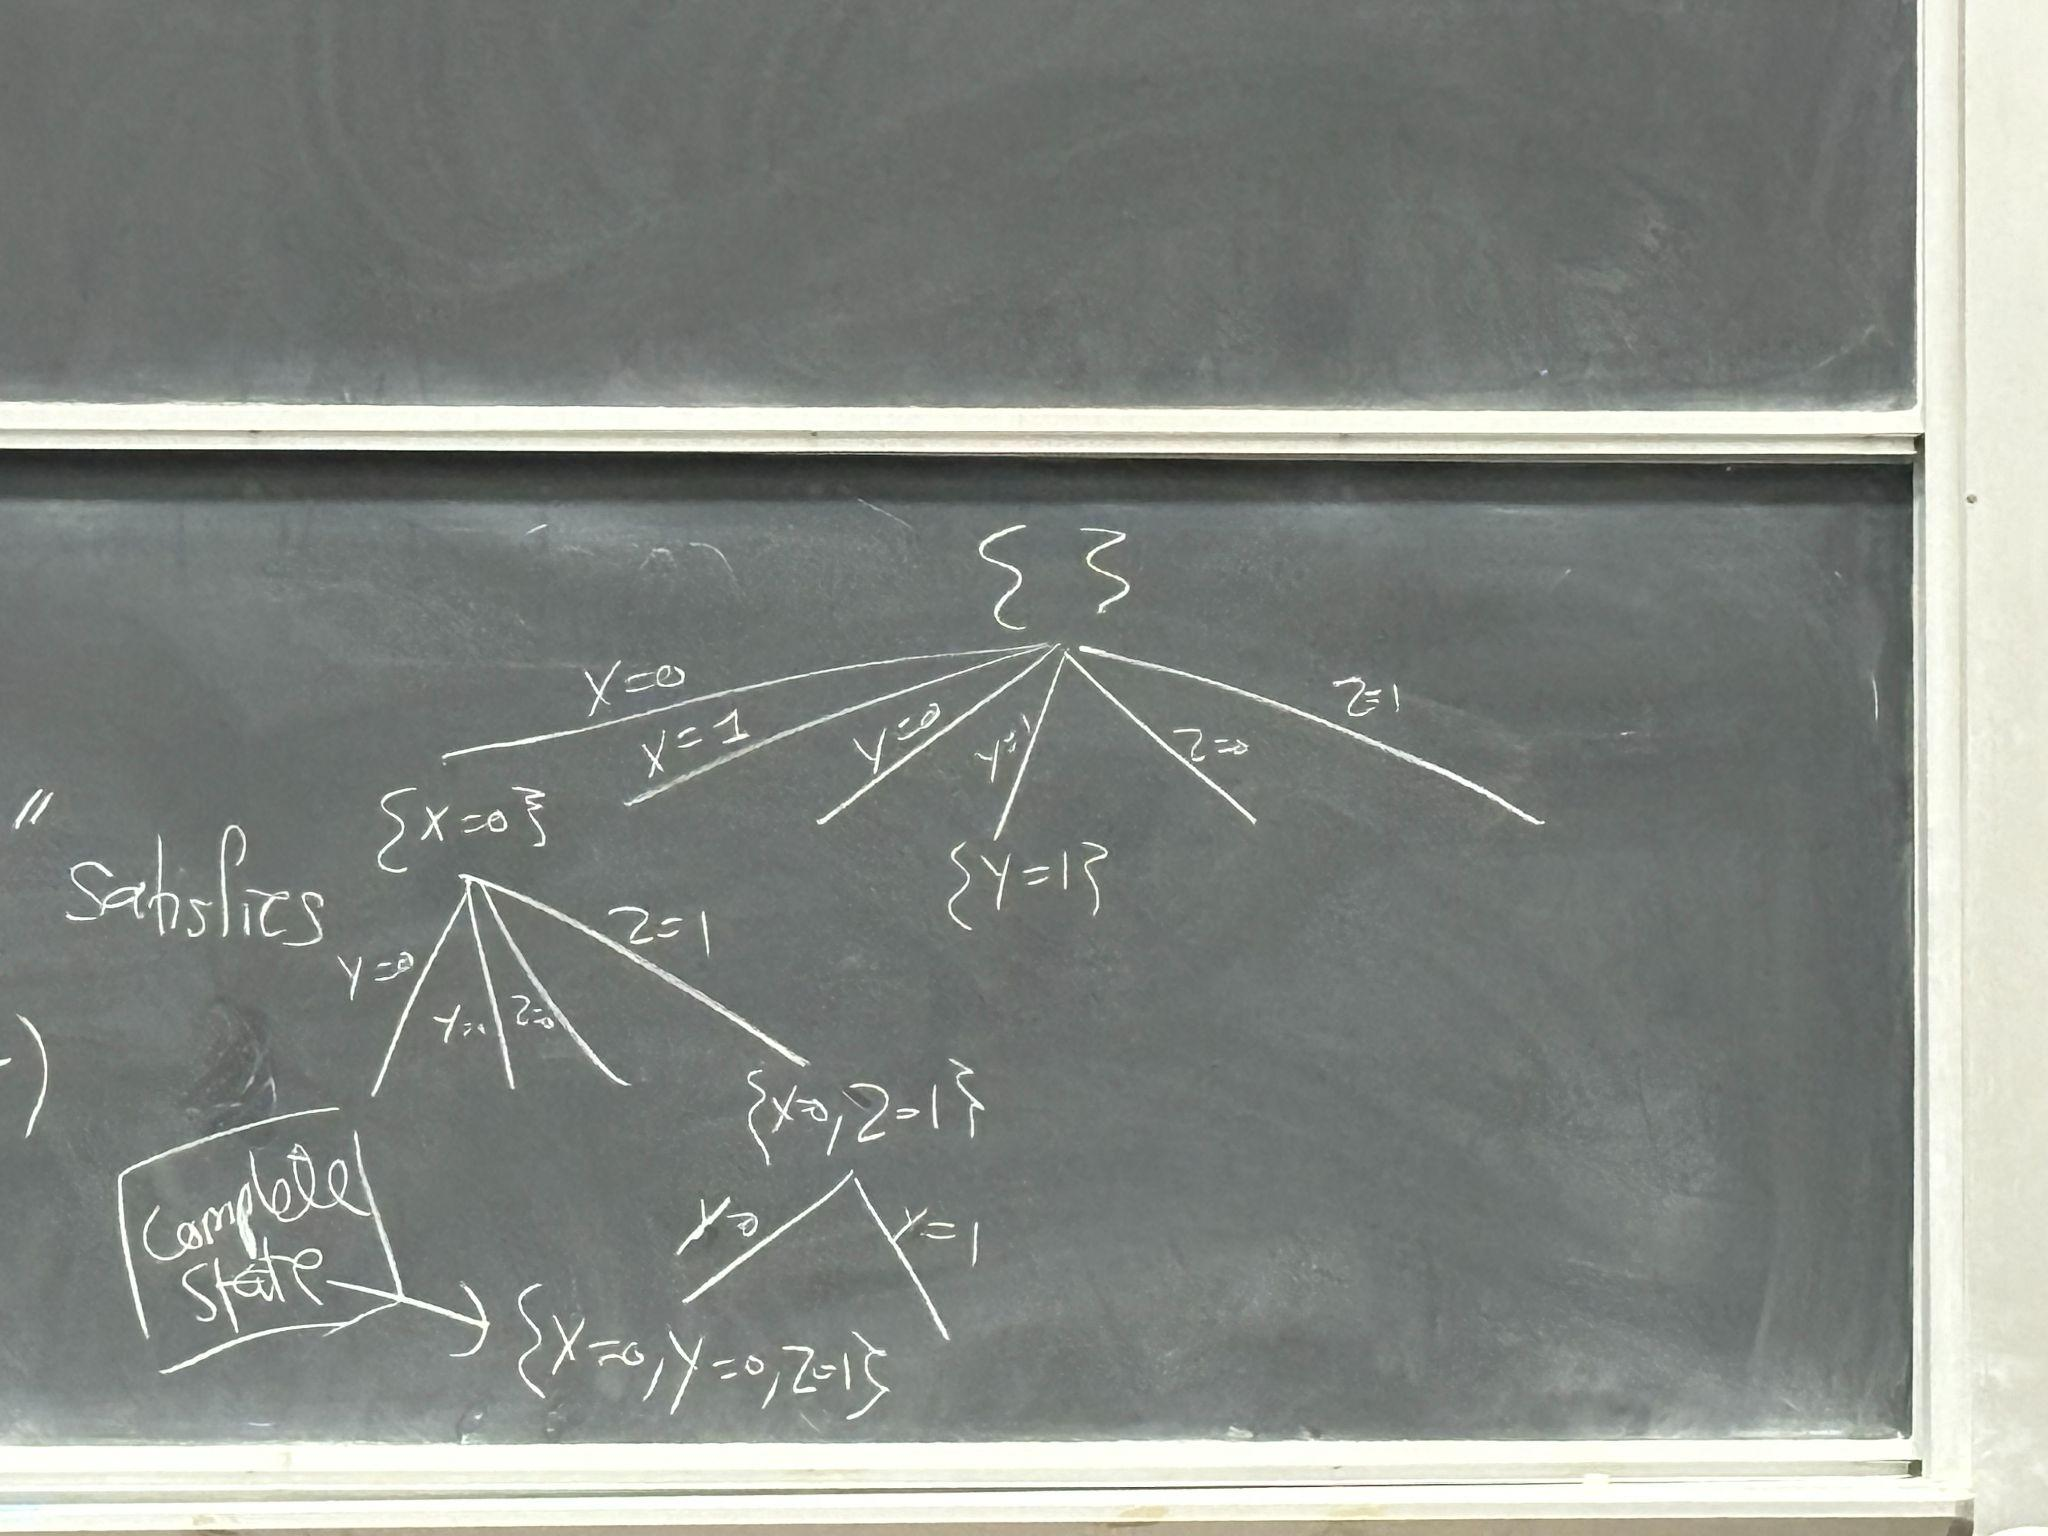 { }
X=0
X=1
Y=0
Y=1
Z=0
Z=1
{X=0}
{Y=1}
"
Satisfies
Y=0
Z=0
Z=1
)
{X=0, Z=1}
Complete
State
Y=0
Y=1
{X=0, Y=0, Z=1}